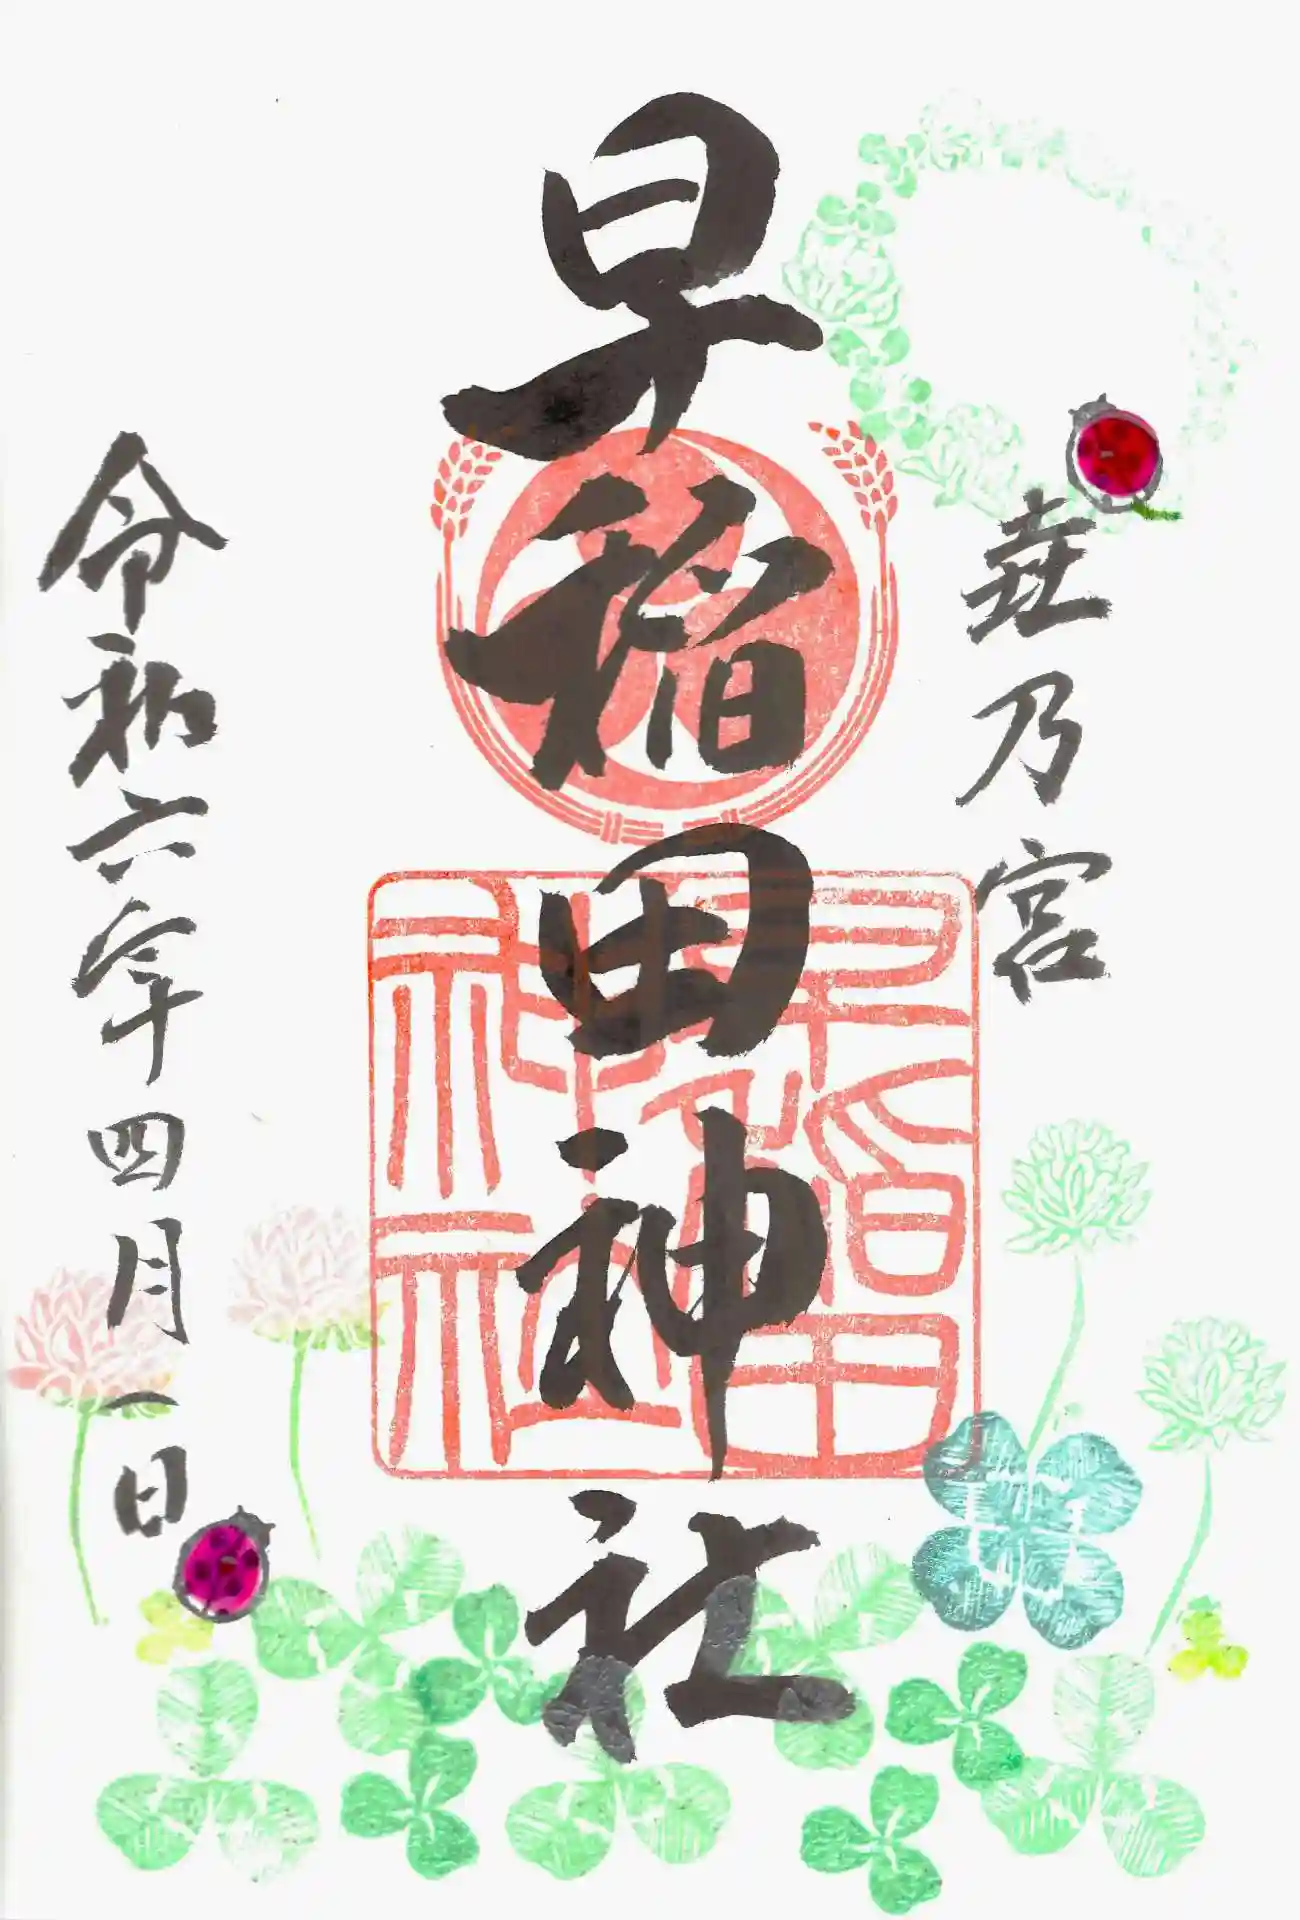 壺乃宮
早稲田神社
早稲田神社
令和六年四月一日